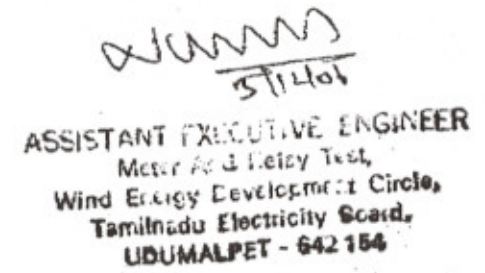 ASSISTANT EXECUTIVE ENGINEER
Meter And Relay Test,
Wind Energy Development Circle,
Tamilnadu Electricity Board,
UDUMALPET - 642 154